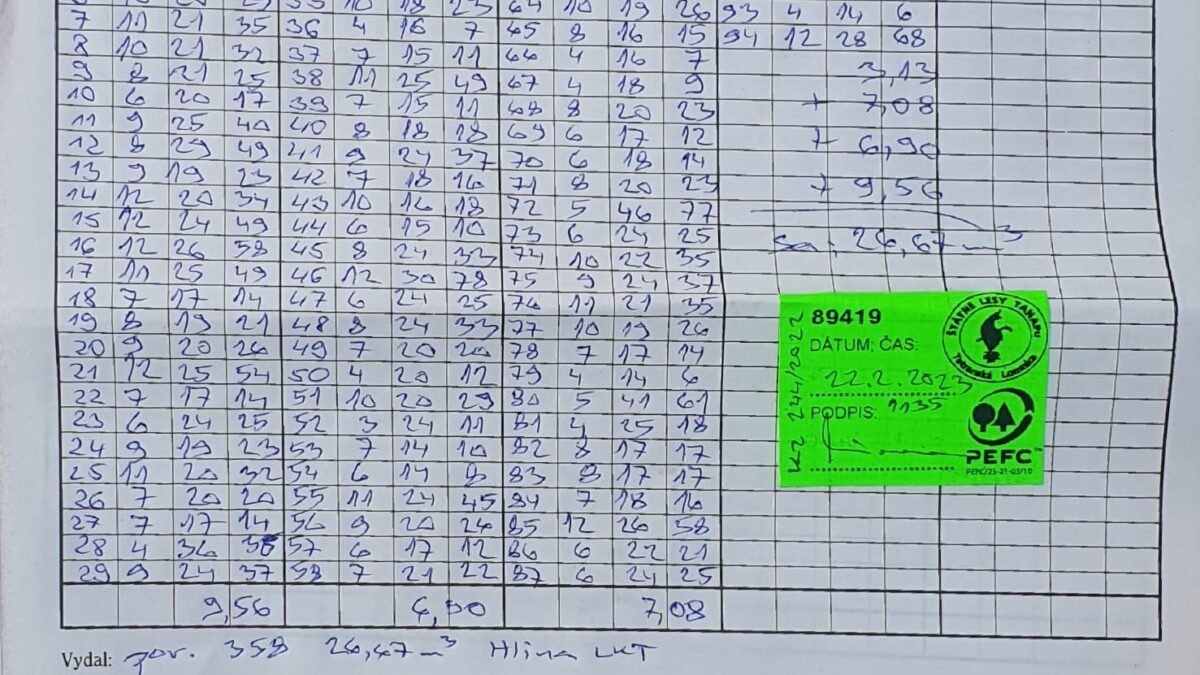 7 11 21 35 36 4 16 7 65 8 16 15 94 12 28 68
8 10 21 32 37 7 15 11 66 4 16 7
3,13
9 8 21 25 38 11 25 49 67 4 18 9
10 6 20 17 39 7 15 11 68 8 20 23
+ 7,08
11 9 25 40 40 8 18 18 69 6 17 12
12 8 29 49 41 9 24 37 70 6 18 14
+ 6,90
13 9 19 23 42 7 18 16 71 8 20 23
+ 9,56
14 12 20 34 43 10 16 18 72 5 46 77
15 12 24 49 44 6 15 10 73 6 24 25
26,67 m³
16 12 26 58 45 8 24 33 74 10 22 35
17 11 25 49 46 12 30 78 75 9 24 37
18 7 17 14 47 6 24 25 76 11 21 35
19 8 19 21 48 8 24 33 77 10 19 26
20 9 20 26 49 7 20 20 78 7 17 14
21 12 25 54 50 4 20 12 79 4 14 6
22 7 17 14 51 10 20 29 80 5 41 61
23 6 24 25 52 3 24 11 81 4 25 18
24 9 19 23 53 7 14 10 82 8 17 17
25 11 20 32 54 6 14 8 83 8 17 17
26 7 20 20 55 11 24 45 84 7 18 16
27 7 17 14 56 9 20 26 85 12 26 58
28 4 36 57 6 17 12 86 6 22 21
29 9 24 37 58 7 21 22 87 6 24 25
9,56 6,90 7,08
Vydal: por. 358 26,67 m³ Hlina LKT
89419
DÁTUM; ČAS:
22.2.2023
PODPIS: 1135
ŠTÁTNE LESY TANAPU
Tatranská Lomnica
PEFC™
PEFC/23-21-03/10